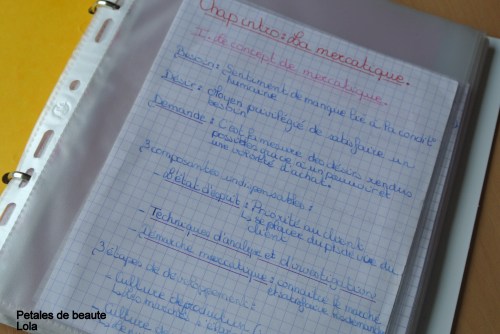 Chap intro : La mercatique.
I. Le concept de mercatique.
Besoin : Sentiment de manque lié à la condit°
humaine
Désir : Moyen privilégié de satisfaire un
besoin
Demande : C'est la mesure des désirs rendus
possibles grâce à un pouvoir et
une volonté d'achat.
3 composantes indispensables :
- L'état d'esprit : Priorité au client
↳ se placer du pt de vue du
client
- Techniques d'analyse et d'investigations
- Démarche mercatique : connaître le marché
3 étapes de développement :
- Culture de production
- Culture de
Petales de beaute
Lola